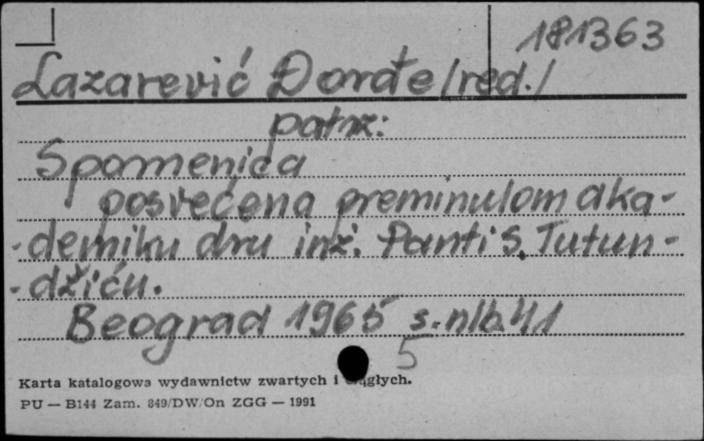 181363
Lazarević Đorđe /red./
patrz:
Spomenica
posvećena preminulom aka-
-demiku dru inż. Panti S. Tutun-
-džiću.
Beograd 1965 s. nlb. 41
5
Karta katalogowa wydawnictw zwartych i ciągłych.
PU — B144 Zam. 849/DW/On ZGG — 1991